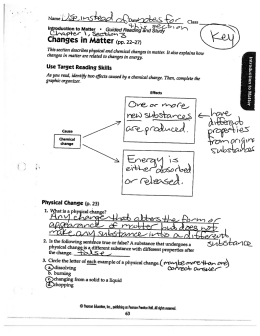 Name Use instead of notes for Class
this section
Key
Introduction to Matter • Guided Reading and Study
Chapter 1, Section 3
Changes in Matter (pp. 22–27)
This section describes physical and chemical changes in matter. It also explains how
changes in matter are related to changes in energy.
Use Target Reading Skills
As you read, identify two effects caused by a chemical change. Then, complete the
graphic organizer.
Introduction to Matter
Effects
One or more
new substances
are produced.
have
different
properties
from original
substances
Cause
Chemical
change
Energy is
either absorbed
or released.
Physical Change (p. 23)
1. What is a physical change?
Any change that alters the form or
appearance of matter but does not
make any substance into a different
substance
2. Is the following sentence true or false? A substance that undergoes a
physical change is a different substance with different properties after
the change. false
3. Circle the letter of each example of a physical change. (may be more than one
correct answer)
a. dissolving
b. burning
c. changing from a solid to a liquid
d. chopping
© Pearson Education, Inc., publishing as Pearson Prentice Hall. All rights reserved.
63